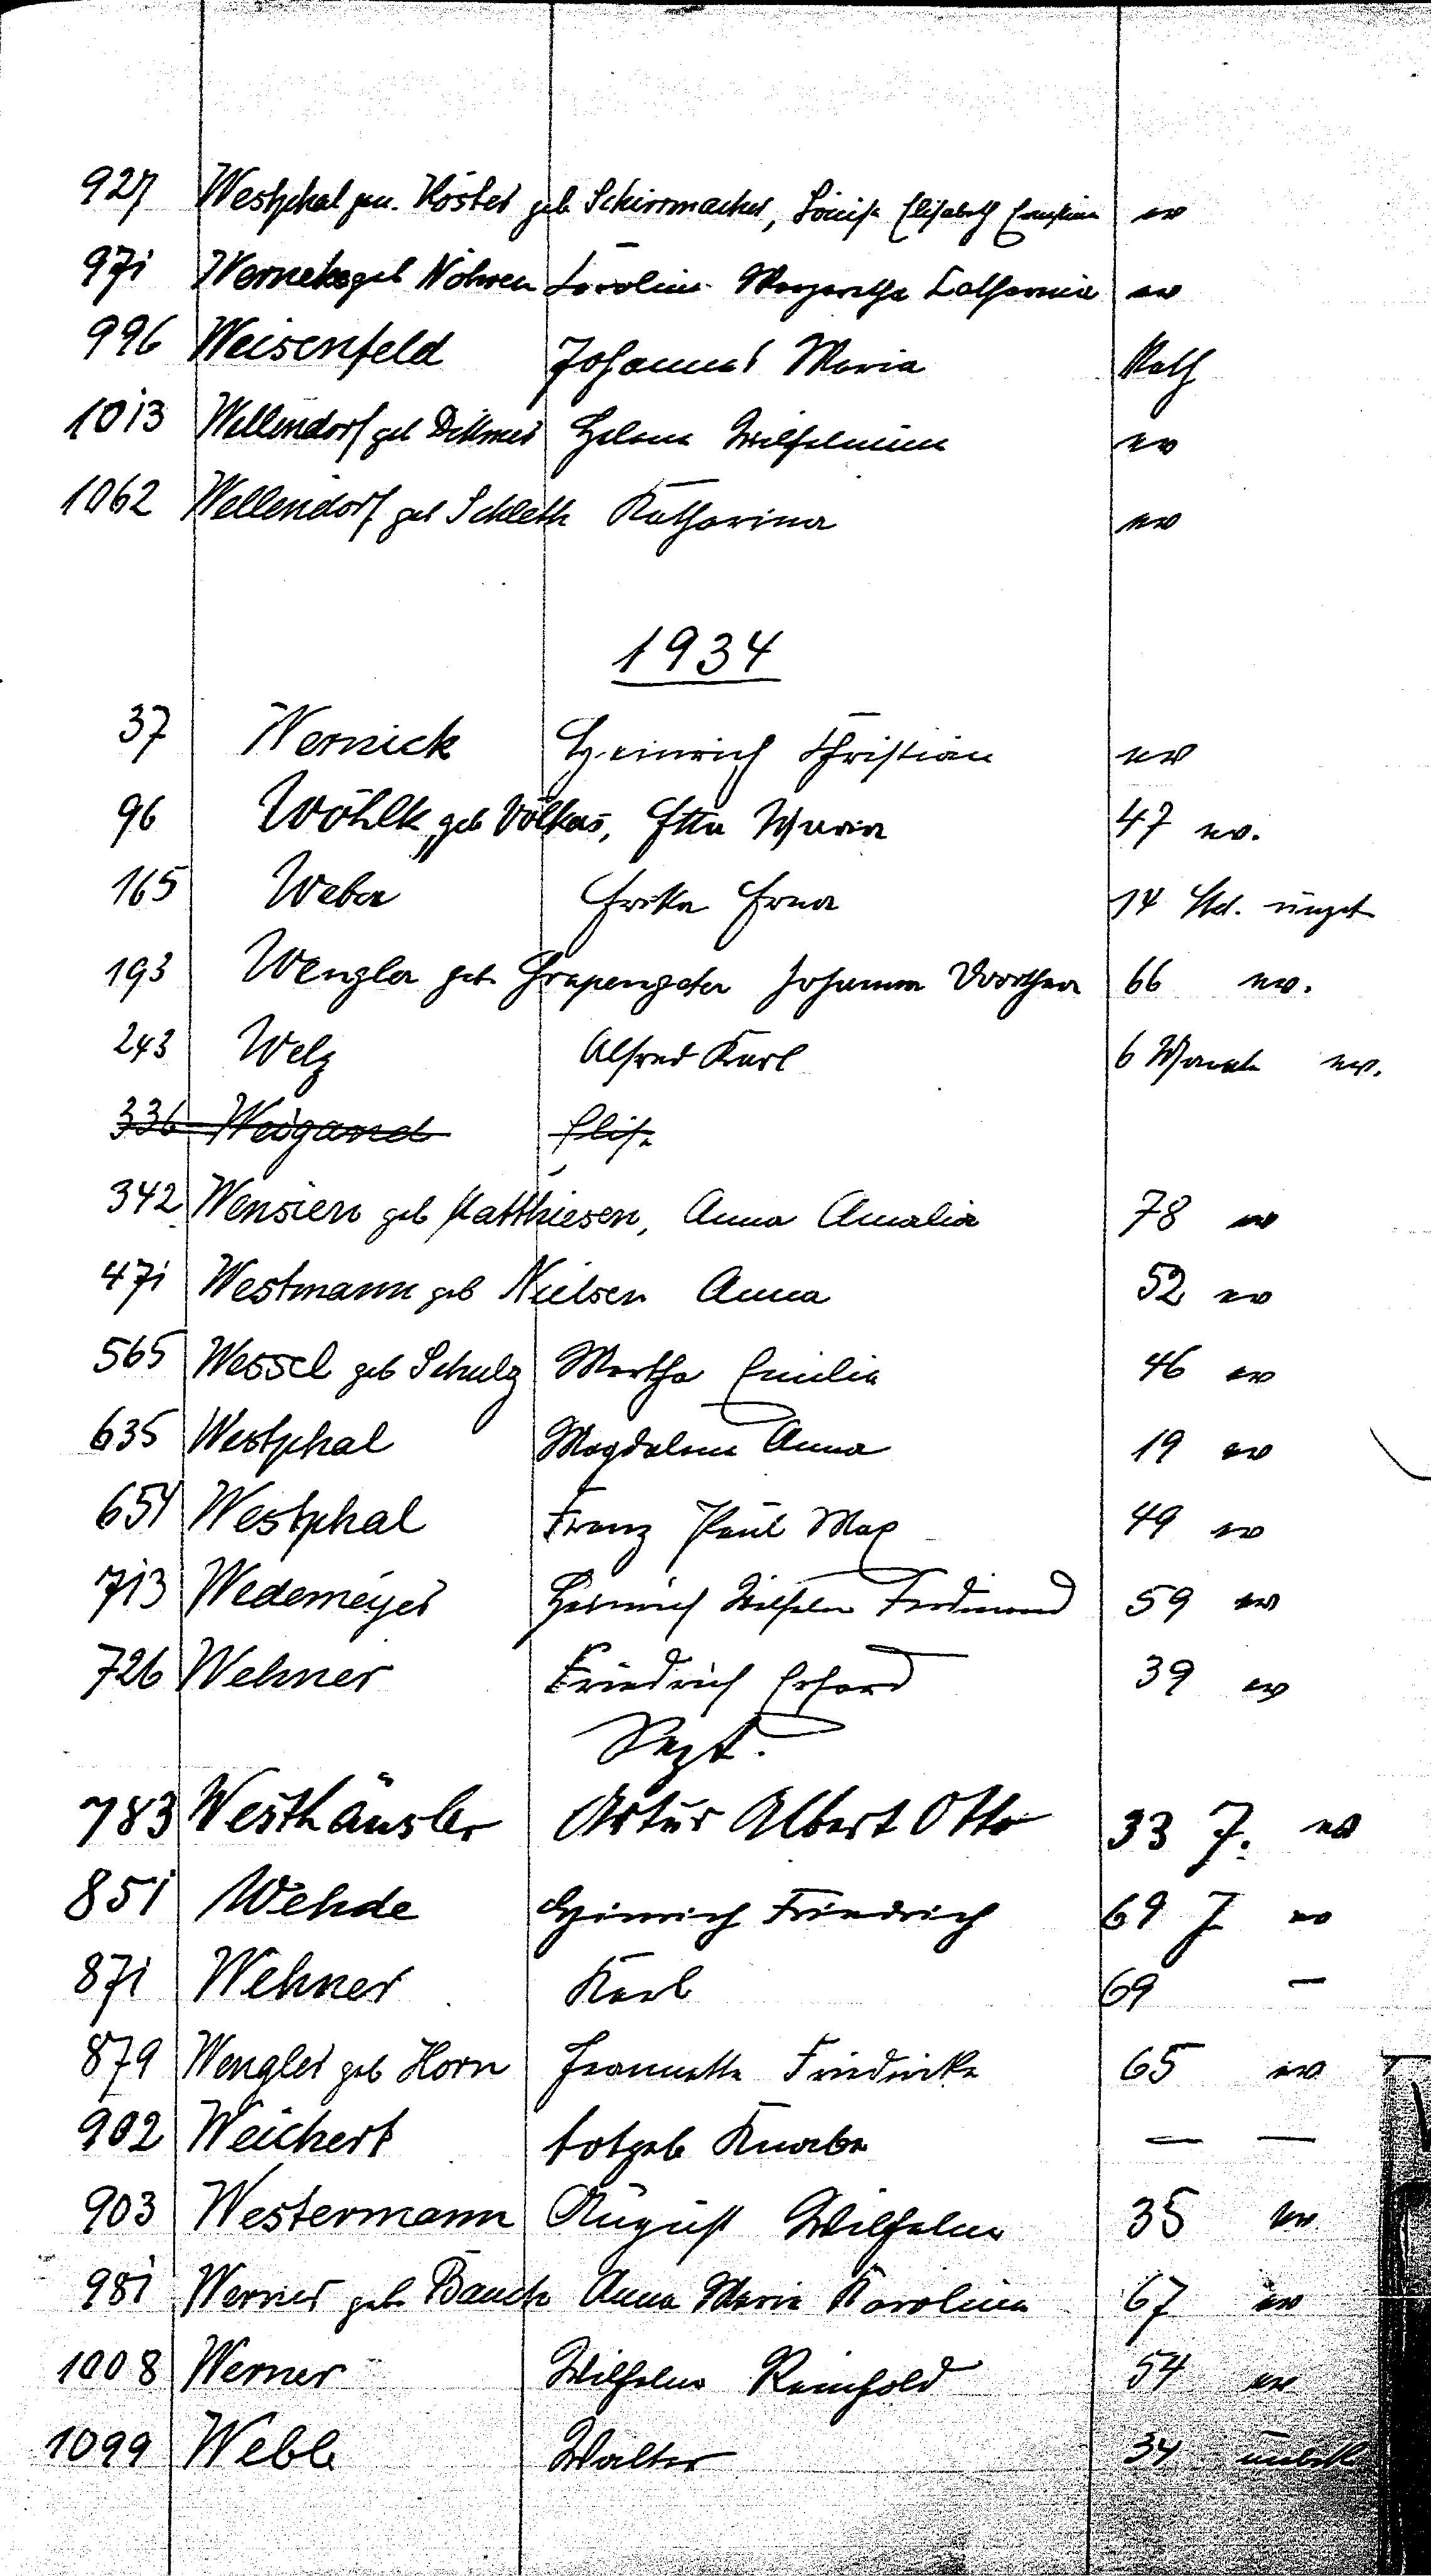 927 Westphal gen. Köster geb Schirrmacher, Louise Elisabeth Christine ev
971 Wernicke geb Nöhren Karolina Margaretha Catharina ev
996 Weisenfeld Johannes Maria Kath
1013 Wellendorf geb Dittmer Helene Wilhelmine ev
1062 Wellendorf geb Schleth Katharina ev
1934
37 Wernick Heinrich Christian ev
96 Wöhlk geb Völkers, Etta Maria 47 ev.
165 Weber Erika Erna 14 Std. unget
193 Wengler geb. Grapengeter Johanna Dorothea 66 ev.
243 Welz Alfred Karl 6 Monate ev.
336 Weigand Elise
342 Wensien geb Matthiesen, Anna Amalia 78 ev
471 Westmann geb Nielsen Anna 52 ev
565 Wessel geb Schulz Martha Emilie 46 ev
635 Westphal Magdalena Anna 19 ev
654 Westphal Franz Paul Max 49 ev
713 Wedemeyer Heinrich Wilhelm Ferdinand 59 ev
726 Wehner Friedrich Erhard 39 ev
Sept.
783 Westhäusler Artur Albert Otto 33 J. ev
851 Wehde Hinrich Friedrich 69 J ev
871 Wehner Karl 69 —
879 Wengler geb Horn Jeannette Friedericke 65 ev
902 Weichert totgeb Knabe — —
903 Westermann August Wilhelm 35 ev
981 Werner geb Bauck Anna Marie Karoline 67 ev
1008 Werner Wilhelm Reinhold 54 ev
1099 Webb Walter 34 unbek